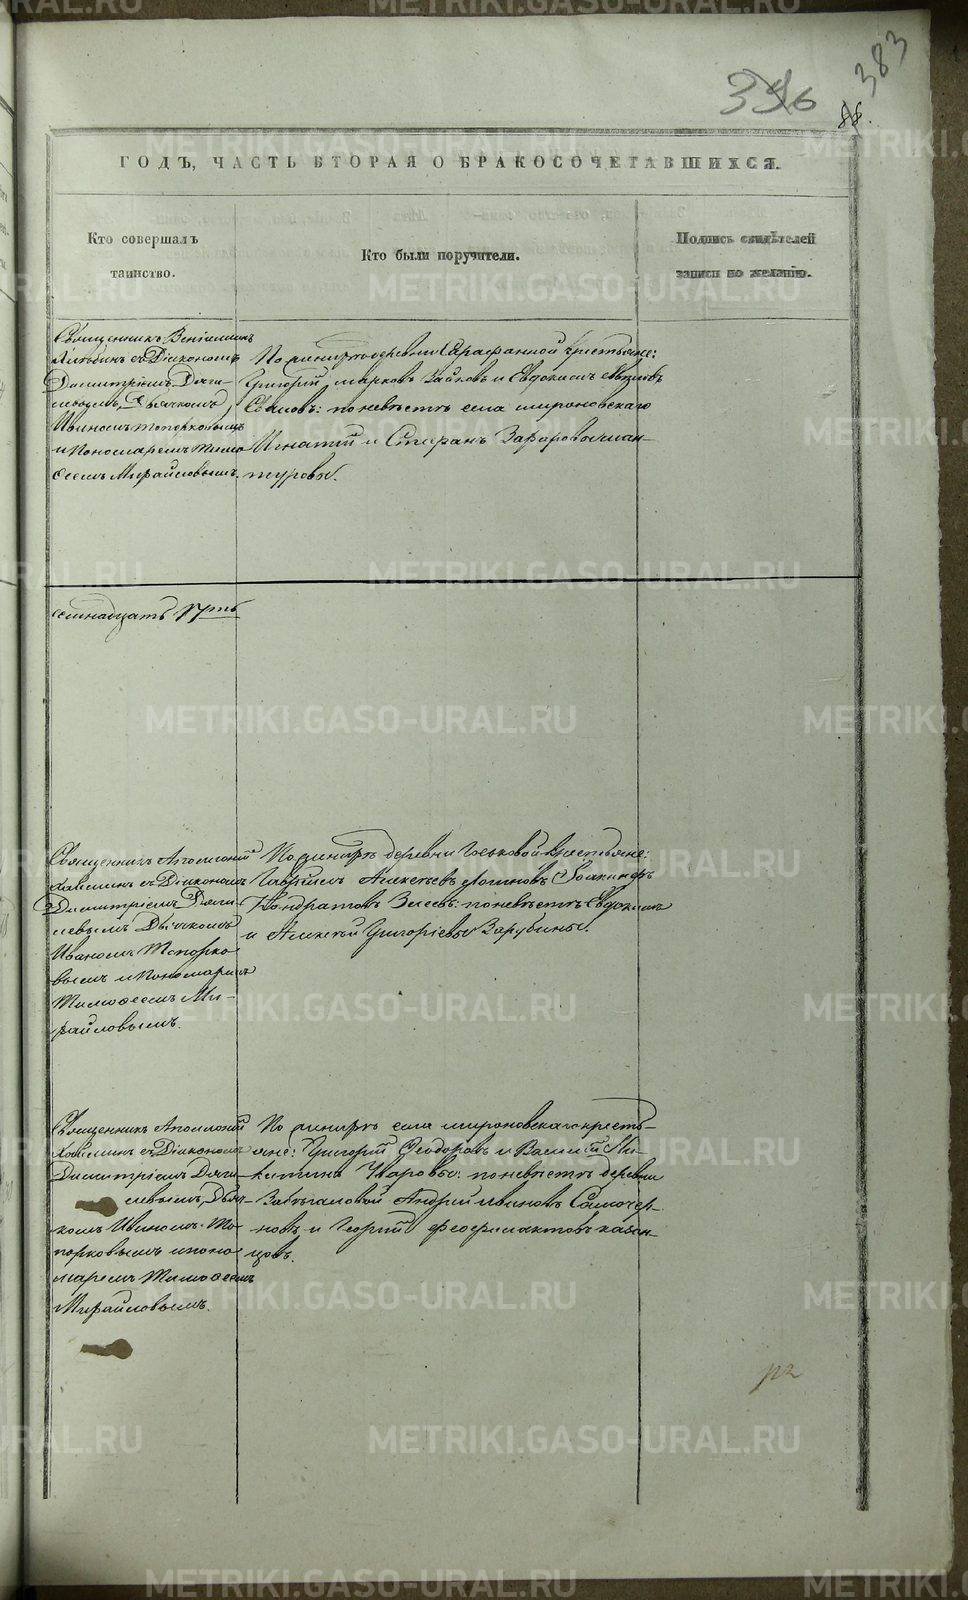 396
383
88.
ГОДЪ, ЧАСТЬ ВТОРАЯ О БРАКОСОЧЕТАВШИХСЯ.
Кто совершалъ
таинство.
Кто были поручители.
Подпись свидѣтелей
записи по желанію.
Священникъ Веніаминъ
съ Діакономъ
Димитріемъ Дяги-
левымъ, Дьячкомъ
Иваномъ Топорковымъ
и Пономаремъ Тимо
ѳеемъ Михайловымъ.
По женихѣ деревни Сарафанной крестьяне:
Григорій Марковъ и Евдокимъ
по невѣстѣ села Мироновскаго
Игнатій и Стефанъ
туровы.
семнадцать 17ть
Священникъ Аполлоній
съ Діакономъ
Димитріемъ Дяги-
левымъ Дьячкомъ
Иваномъ Топорко-
вымъ и Пономаремъ
Тимоѳеемъ Ми-
хайловымъ.
По женихѣ деревни крестьяне:
Гавріилъ Алексѣевъ Логиновъ
Кондратовъ по невѣстѣ Евдокимъ
и Алексѣй Григорьевы Зарубины.
Священникъ Аполлоній
съ Діакономъ
Димитріемъ Дяги-
левымъ, Дьяч-
комъ Иваномъ То-
порковымъ и поно-
маремъ Тимоѳеемъ
Михайловымъ.
По женихѣ села Мироновскаго кресть-
яне: Григорій Ѳеодоровъ и Василій Ни-
китинъ Уваровы: по невѣстѣ деревни
Андрей Ивановъ Самочер-
новъ и Георгій Феофилактовъ казан-
цовъ.
METRIKI.GASO-URAL.RU